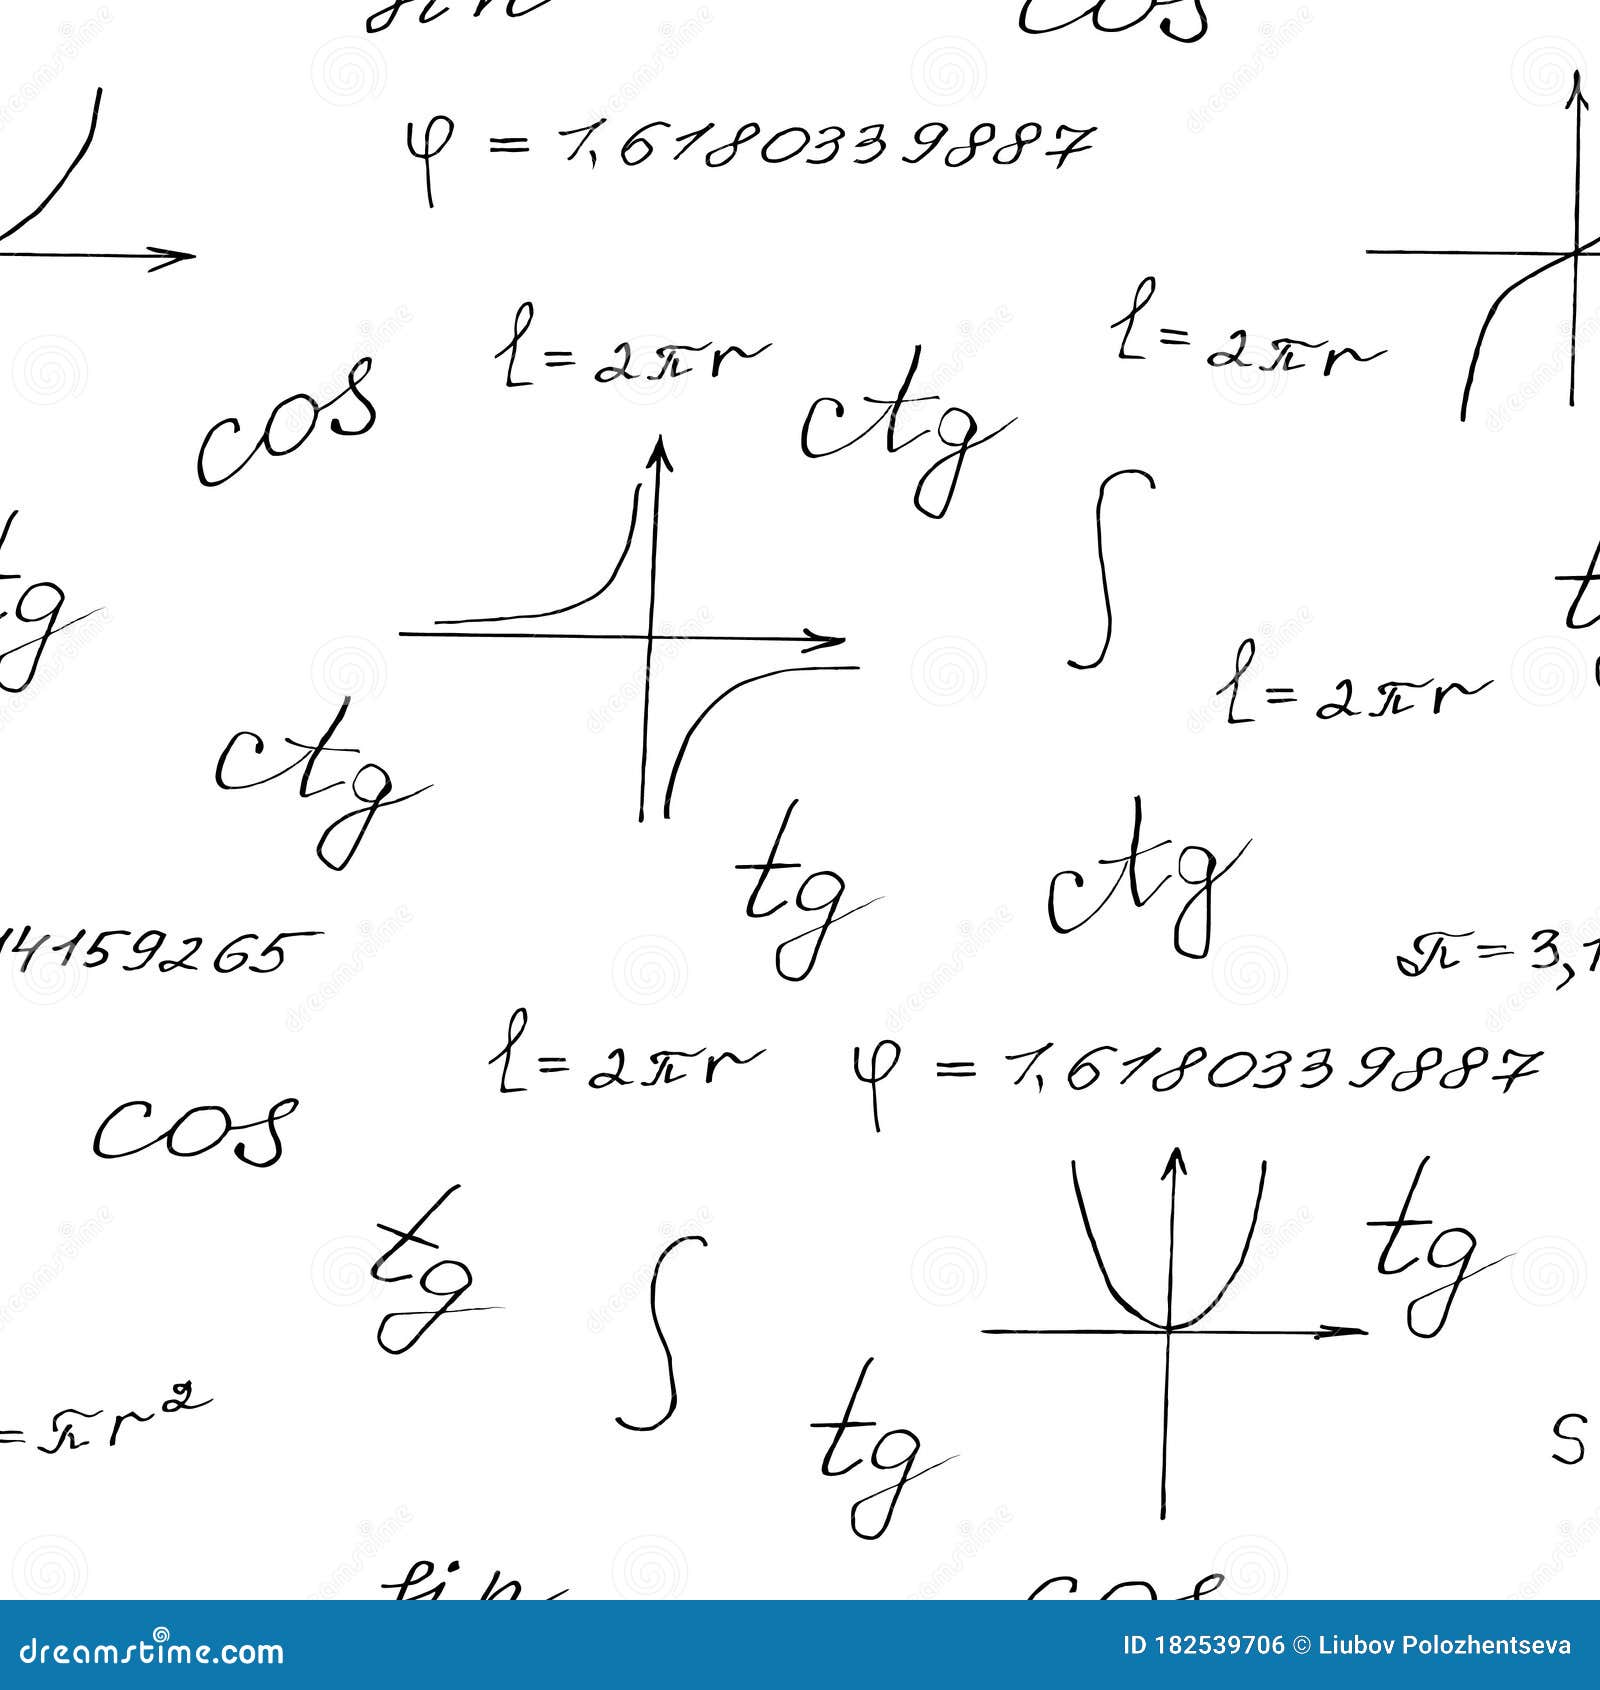 sin cos
φ = 1,6180339887
l = 2πr
l = 2πr
cos
ctg
tg
∫
t
l = 2πr
ctg
tg
ctg
14159265
π = 3,1
l = 2πr
φ = 1,6180339887
cos
tg
tg
∫
= πr²
tg
S
sin cos
dreamstime.com
ID 182539706 © Liubov Polozhentseva